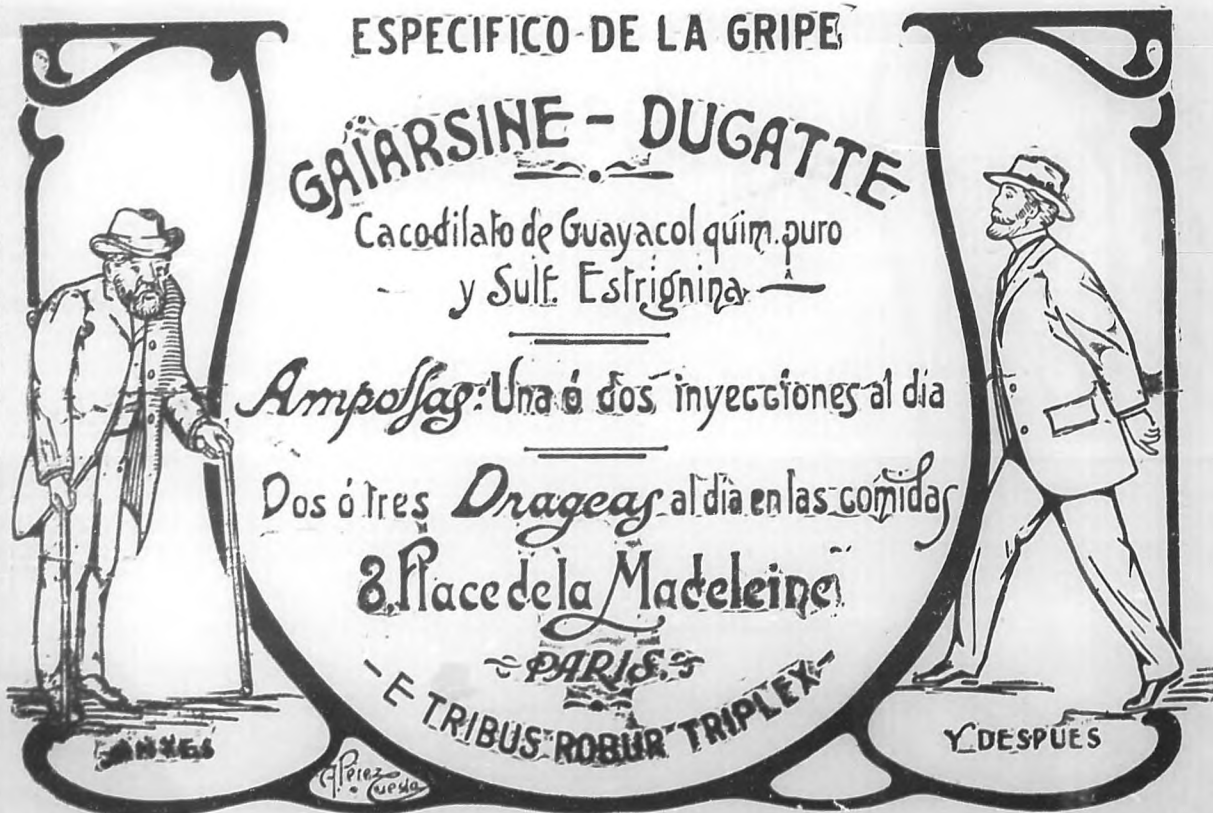 ESPECIFICO-DE LA GRIPE
GAÏARSINE - DUGATTE
Cacodilato de Guayacol quim. puro
y Sulf. Estrignina
Ampollas: Una ó dos inyecciones al dia
Dos ó tres Drageas al dia en las comidas
8, Place de la Madeleine
PARIS.
E TRIBUS "ROBUR" TRIPLEX
ANTES
Y DESPUES
A. Pérez
Cuesta